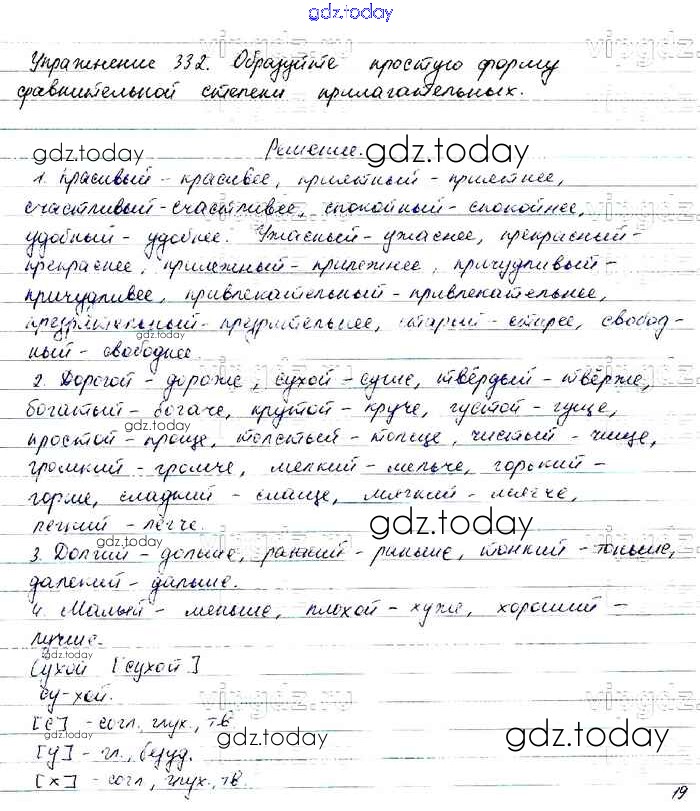 gdz.today
Упражнение 332. Образуйте простую форму
сравнительной степени прилагательных.
Решение.
gdz.today
gdz.today
1. Красивый - красивее, приятный - приятнее,
счастливый - счастливее, спокойный - спокойнее,
удобный - удобнее. Ужасный - ужаснее, прекрасный -
прекраснее, прилежный - прилежнее, причудливый -
причудливее, привлекательный - привлекательнее,
презрительный - презрительнее, старый - старее, свобод-
ный - свободнее.
2. Дорогой - дороже, сухой - суше, твёрдый - твёрже,
богатый - богаче, крутой - круче, густой - гуще,
простой - проще, толстый - толще, чистый - чище,
громкий - громче, мелкий - мельче, горький -
горше, сладкий - слаще, мягкий - мягче,
легкий - легче.
gdz.today
3. Долгий - дольше, ранний - раньше, тонкий - тоньше,
далекий - дальше.
4. Малый - меньше, плохой - хуже, хороший -
лучше.
Сухой [сухой]
су-хой.
[с] - согл., глух., тв.
[у] - гл., безуд.
[х] - согл., глух., тв.
gdz.today
gdz.today
gdz.today
19